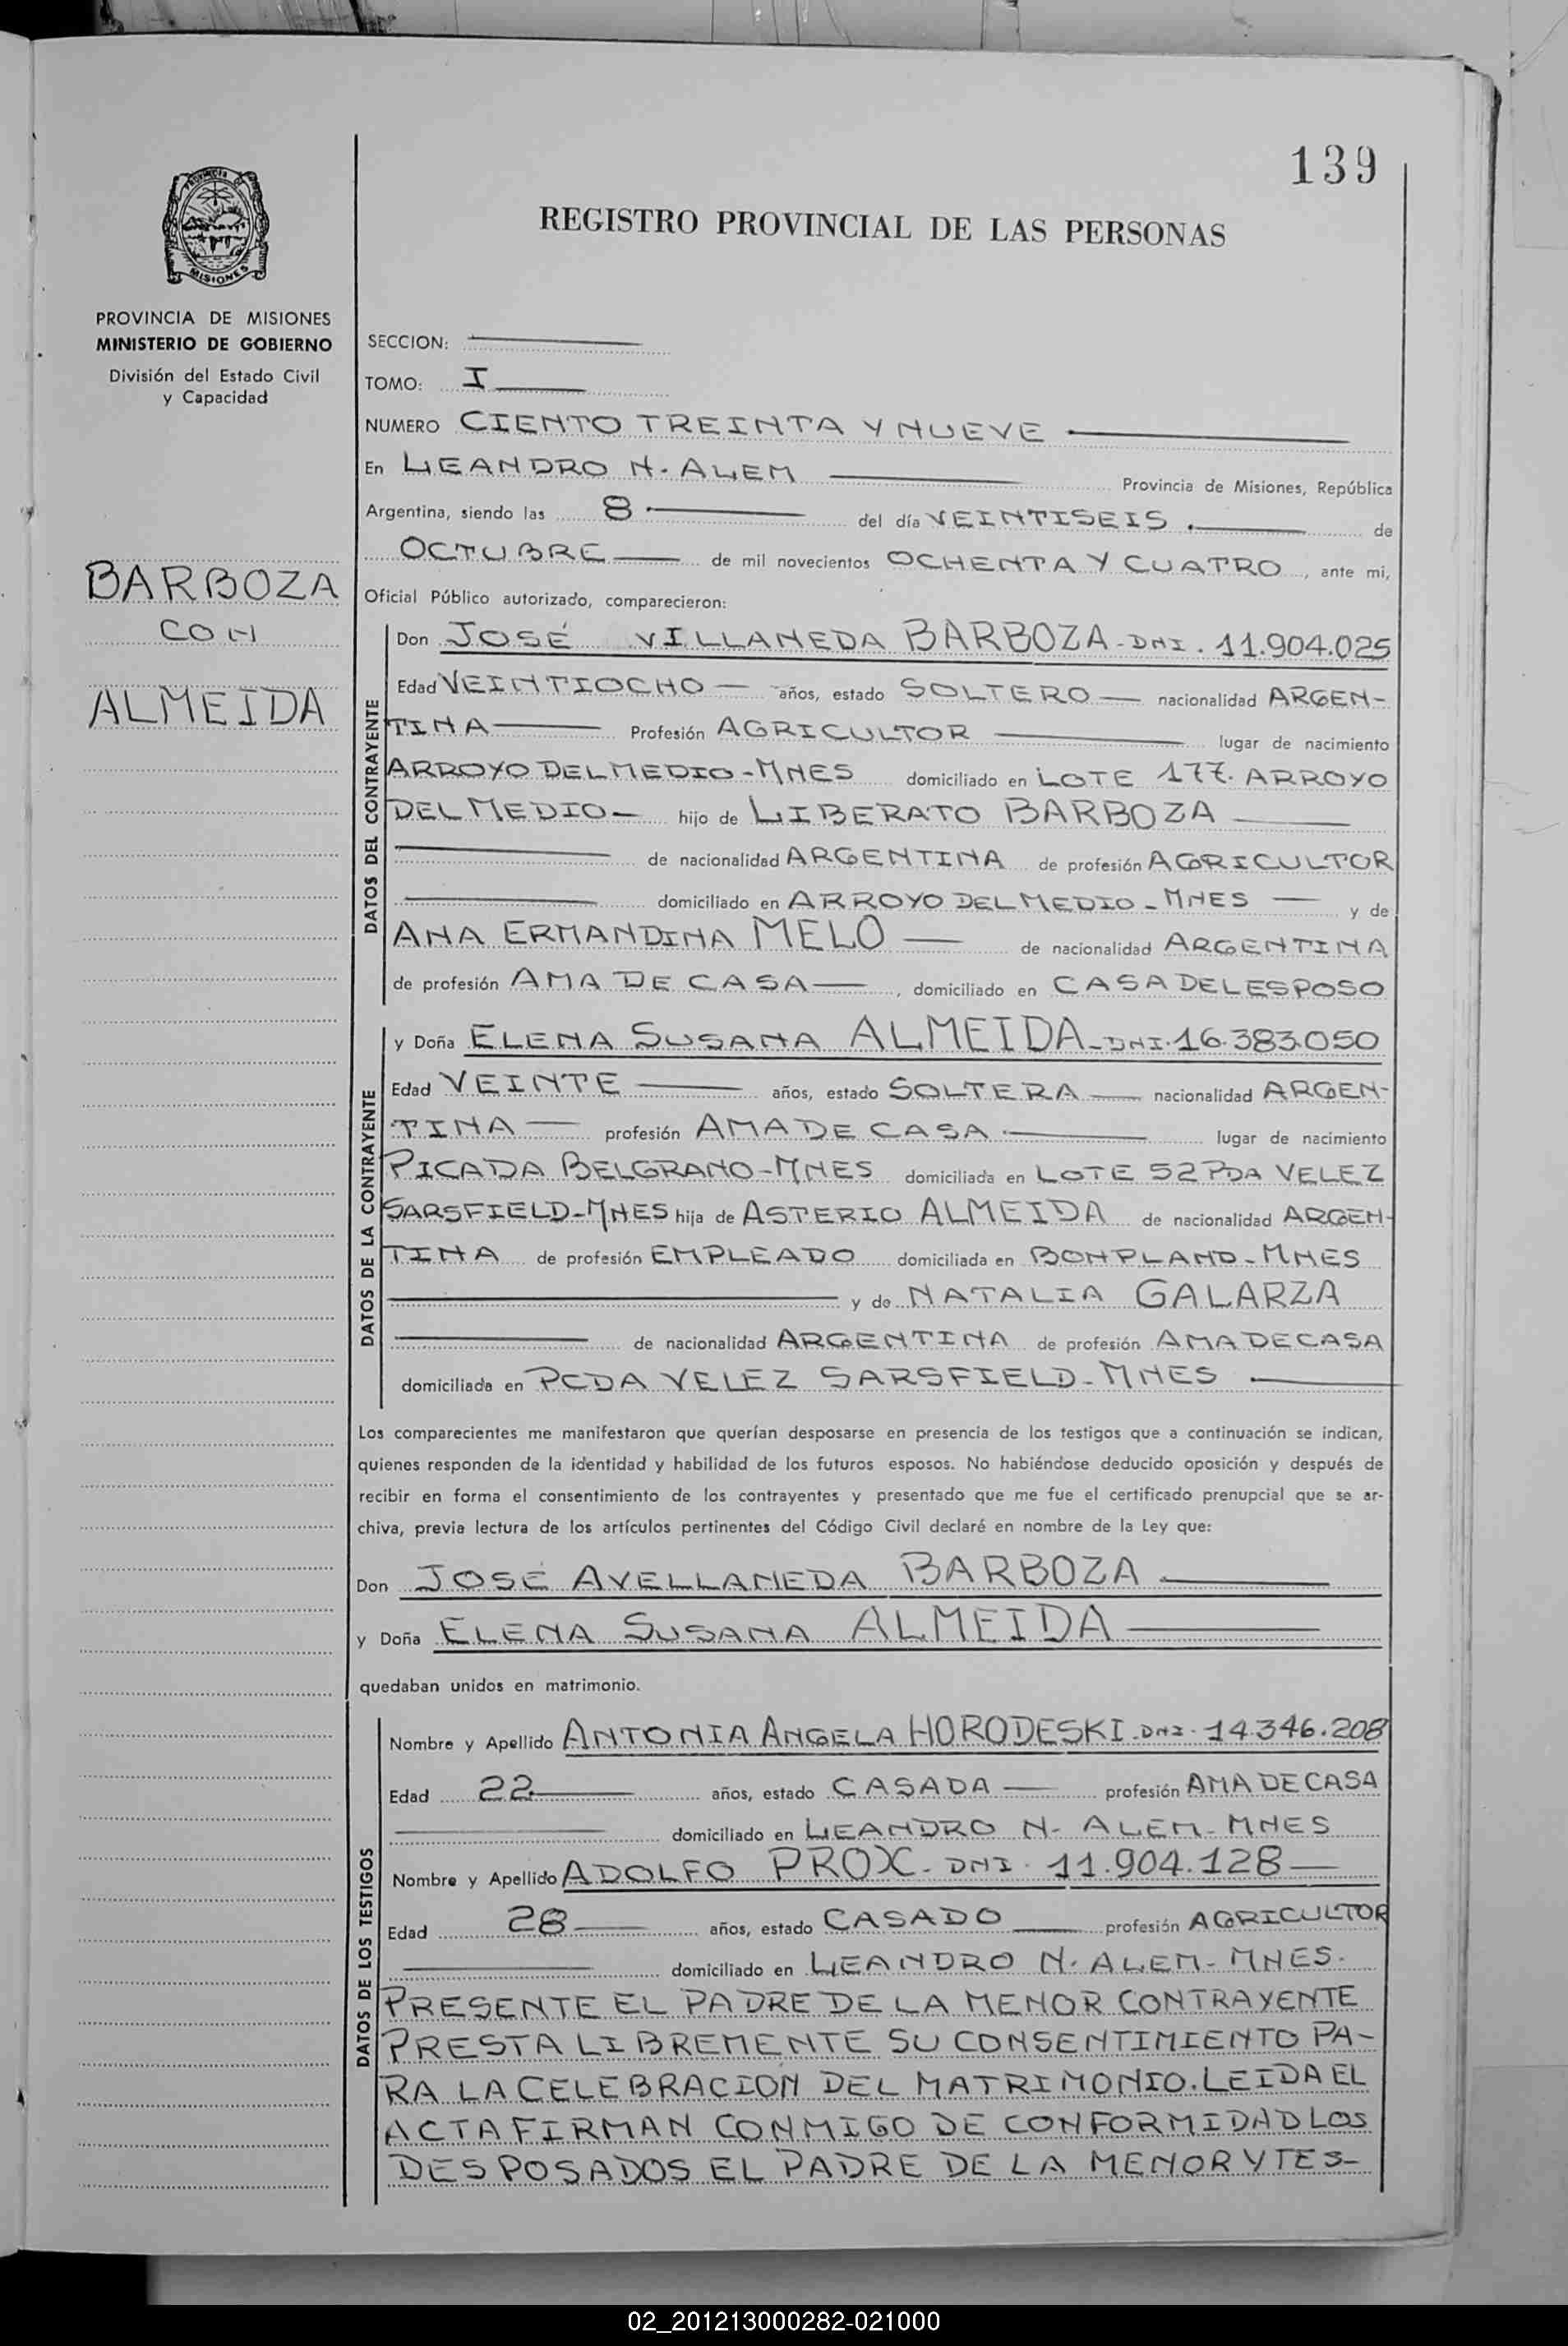 139
REGISTRO PROVINCIAL DE LAS PERSONAS
PROVINCIA DE MISIONES
MINISTERIO DE GOBIERNO
División del Estado Civil
y Capacidad
BARBOZA
CON
ALMEIDA
SECCION:
TOMO: I
NUMERO CIENTO TREINTA Y NUEVE
En LEANDRO N. ALEM Provincia de Misiones, República
Argentina, siendo las 8 del día VEINTISEIS de
OCTUBRE de mil novecientos OCHENTA Y CUATRO, ante mi,
Oficial Público autorizado, comparecieron:
DATOS DEL CONTRAYENTE
Don JOSÉ VILLANEDA BARBOZA - DNI. 11.904.025
Edad VEINTIOCHO años, estado SOLTERO nacionalidad ARGEN-
TINA Profesión AGRICULTOR lugar de nacimiento
ARROYO DEL MEDIO - MNES domiciliado en LOTE 177. ARROYO
DEL MEDIO hijo de LIBERATO BARBOZA
de nacionalidad ARGENTINA de profesión AGRICULTOR
domiciliado en ARROYO DEL MEDIO - MNES y de
ANA ERMANDINA MELO de nacionalidad ARGENTINA
de profesión AMA DE CASA, domiciliado en CASA DEL ESPOSO
DATOS DE LA CONTRAYENTE
y Doña ELENA SUSANA ALMEIDA - DNI. 16.383.050
Edad VEINTE años, estado SOLTERA nacionalidad ARGEN-
TINA profesión AMA DE CASA lugar de nacimiento
PICADA BELGRANO - MNES domiciliada en LOTE 52 PDA VELEZ
SARSFIELD - MNES hija de ASTERIO ALMEIDA de nacionalidad ARGEN-
TINA de profesión EMPLEADO domiciliada en BONPLAND - MNES
y de NATALIA GALARZA
de nacionalidad ARGENTINA de profesión AMA DE CASA
domiciliada en PCDA VELEZ SARSFIELD - MNES
Los comparecientes me manifestaron que querían desposarse en presencia de los testigos que a continuación se indican,
quienes responden de la identidad y habilidad de los futuros esposos. No habiéndose deducido oposición y después de
recibir en forma el consentimiento de los contrayentes y presentado que me fue el certificado prenupcial que se ar-
chiva, previa lectura de los artículos pertinentes del Código Civil declaré en nombre de la Ley que:
Don JOSÉ AVELLANEDA BARBOZA
y Doña ELENA SUSANA ALMEIDA
quedaban unidos en matrimonio.
DATOS DE LOS TESTIGOS
Nombre y Apellido ANTONIA ANGELA HORODESKI - DNI. 14.346.208
Edad 22 años, estado CASADA profesión AMA DE CASA
domiciliado en LEANDRO N. ALEM - MNES
Nombre y Apellido ADOLFO PROX - DNI. 11.904.128
Edad 28 años, estado CASADO profesión AGRICULTOR
domiciliado en LEANDRO N. ALEM - MNES.
PRESENTE EL PADRE DE LA MENOR CONTRAYENTE
PRESTA LIBREMENTE SU CONSENTIMIENTO PA-
RA LA CELEBRACION DEL MATRIMONIO. LEIDA EL
ACTA FIRMAN CONMIGO DE CONFORMIDAD LOS
DESPOSADOS EL PADRE DE LA MENOR Y TES-
02_201213000282-021000